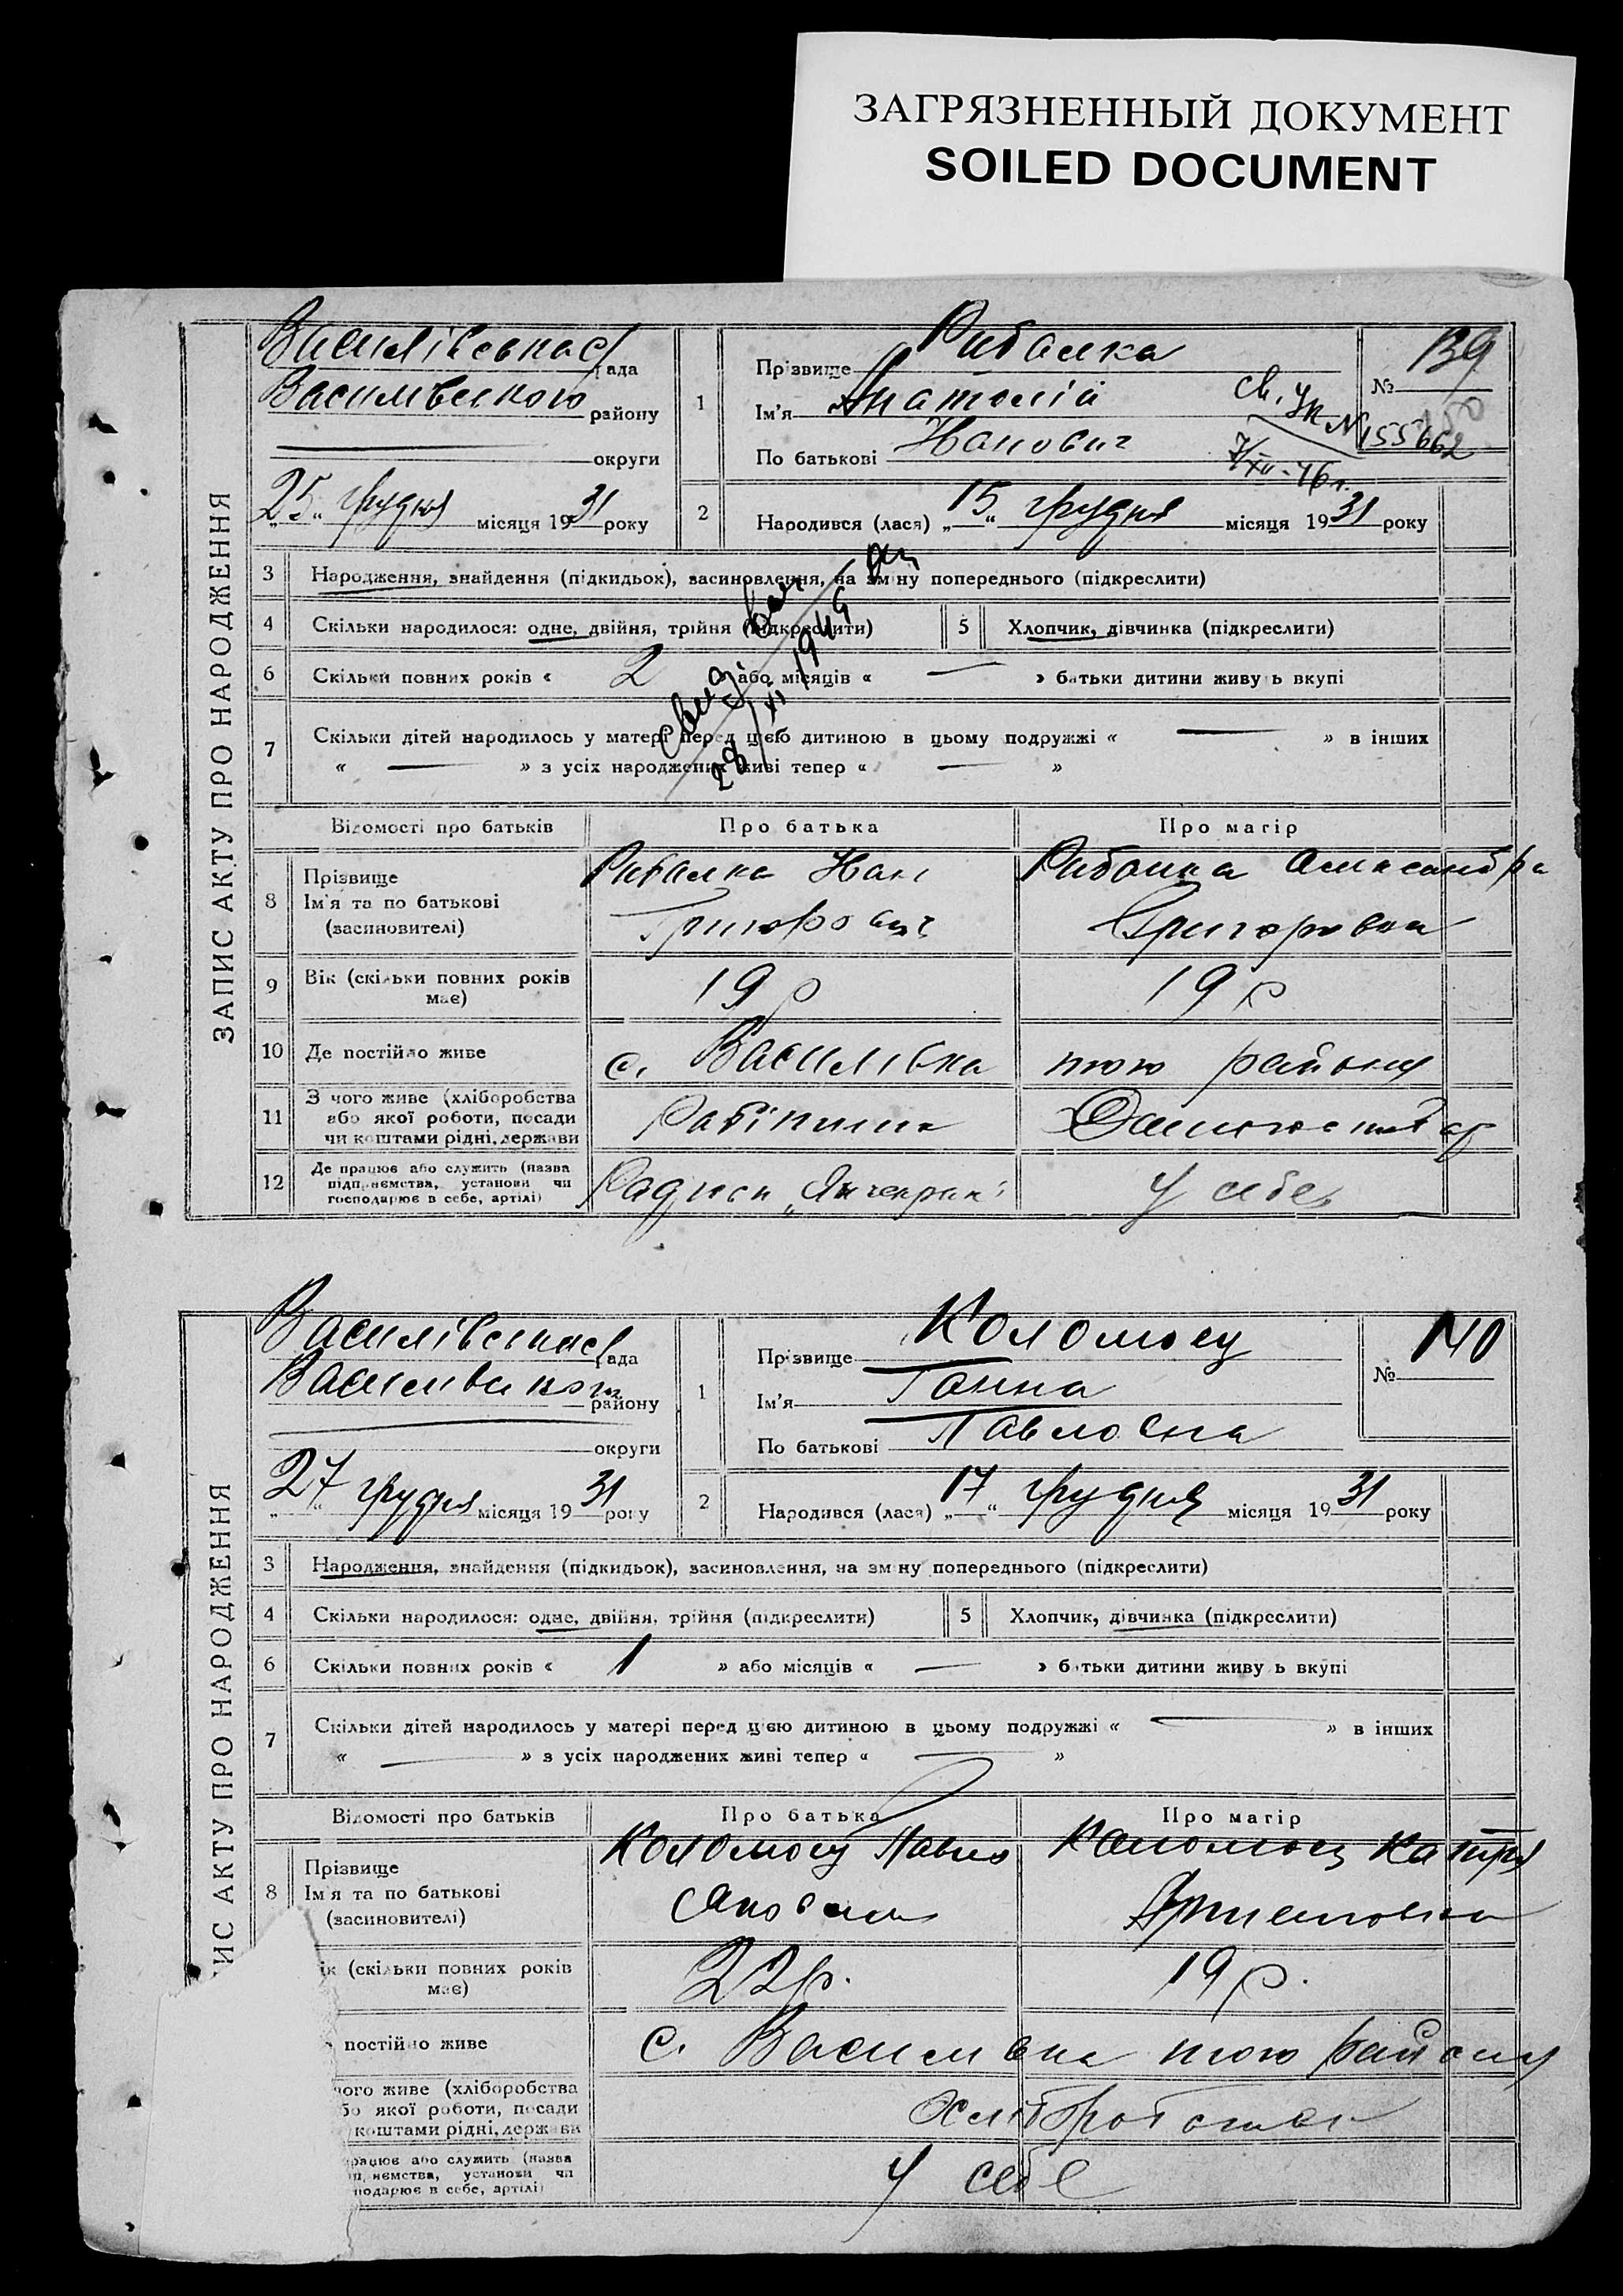 ЗАГРЯЗНЕННЫЙ ДОКУМЕНТ
SOILED DOCUMENT
ЗАПИС АКТУ ПРО НАРОДЖЕННЯ
Василівська с/рада
Васильвського району
округи
„25“ грудня місяця 1931 року
1
Прізвище Рибалка
Ім'я Анатолій
По батькові Іванович
№ 139
св. ук №155662
7/XII-46 г.
2
Народився (лася) „15“ грудня місяця 1931 року
3 Народження, знайдення (підкидьок), засиновлення, на зміну попереднього (підкреслити)
4 Скільки народилося: одне, двійня, трійня (підкреслити)
5 Хлопчик, дівчинка (підкреслити)
6 Скільки повних років « 2 » або місяців « — » батьки дитини живуть вкупі
7 Скільки дітей народилось у матері перед цією дитиною в цьому подружжі « — » в інших
« — » з усіх народжених живі тепер « — »
28/XI 1949
Відомості про батьків Про батька Про матір
8 Прізвище
Ім'я та по батькові
(засиновителі)
Рибалка Іван
Григорович
Рибалка Олександра
Григоровна
9 Вік (скільки повних років має)
19 р
19 р
10 Де постійно живе
с. Василівка того району
11 З чого живе (хліборобства
або якої роботи, посади
чи коштами рідні, держави
Робітник
12 Де працює або служить (назва
підприємства, установи чи
господарює в себе, артілі)
У себе
ИС АКТУ ПРО НАРОДЖЕННЯ
Василівська с/рада
Васильвського району
округи
„27“ грудня місяця 1931 року
1
Прізвище Коломоєц
Ім'я Ганна
По батькові Павловна
№ 140
2
Народився (лася) „17“ грудня місяця 1931 року
3 Народження, знайдення (підкидьок), засиновлення, на зміну попереднього (підкреслити)
4 Скільки народилося: одне, двійня, трійня (підкреслити)
5 Хлопчик, дівчинка (підкреслити)
6 Скільки повних років « 1 » або місяців « — » батьки дитини живуть вкупі
7 Скільки дітей народилось у матері перед цією дитиною в цьому подружжі « — » в інших
« — » з усіх народжених живі тепер « — »
Відомості про батьків Про батька Про матір
8 Прізвище
Ім'я та по батькові
(засиновителі)
Коломоєц Павло
Коломоєц Катря
ік (скільки повних років має)
22 р.
19 р.
постійно живе
с. Василівка того району
чого живе (хліборобства
бо якої роботи, посади
коштами рідні, держави
Хліборобством
рацює або служить (назва
підприємства, установи чи
подарює в себе, артілі)
У себе